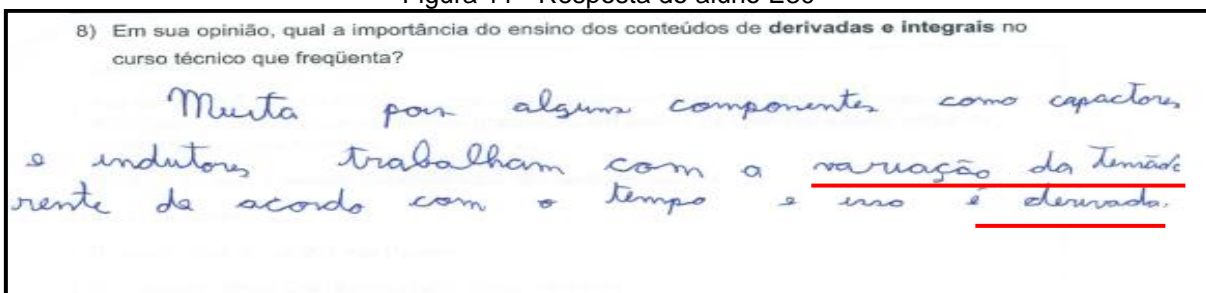 8) Em sua opinião, qual a importância do ensino dos conteúdos de derivadas e integrais no
curso técnico que freqüenta?
Muita pois algum componentes como capactores
e indutores trabalham com a variação da
rente de acordo com o tempo e isso é derivada.